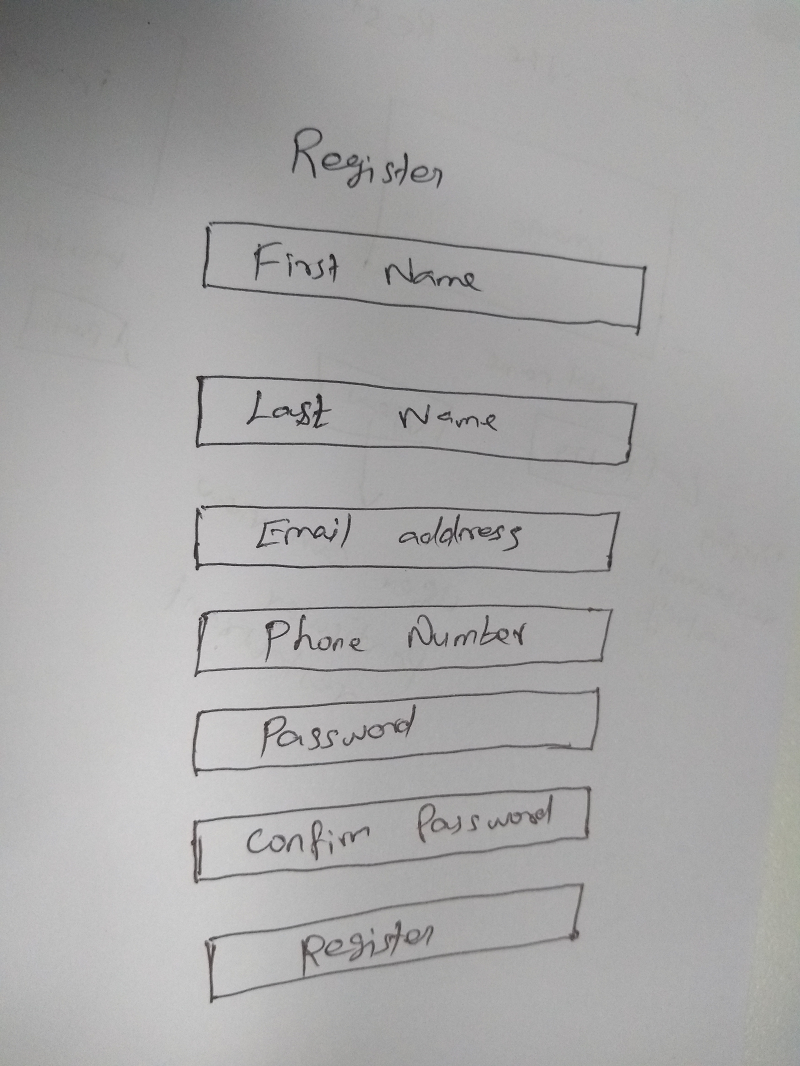 Register
First Name
Last Name
Email address
Phone Number
Password
Confirm Password
Register